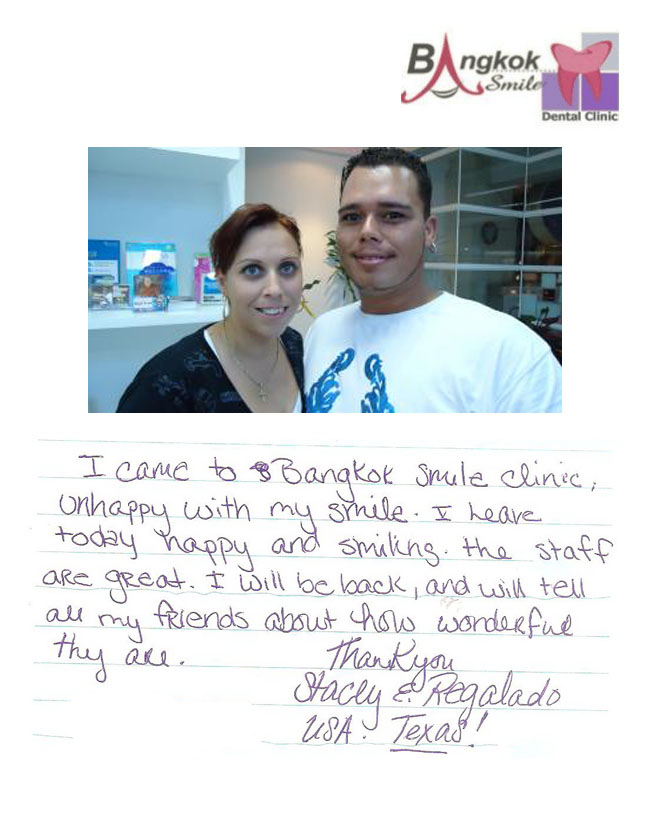 BAngkok
Smile
Dental Clinic
I came to Bangkok Smile clinic,
unhappy with my smile. I leave
today happy and smiling. the staff
are great. I will be back, and will tell
all my friends about how wonderful
thy are.
Thankyou
Stacey E. Regalado
USA. Texas!